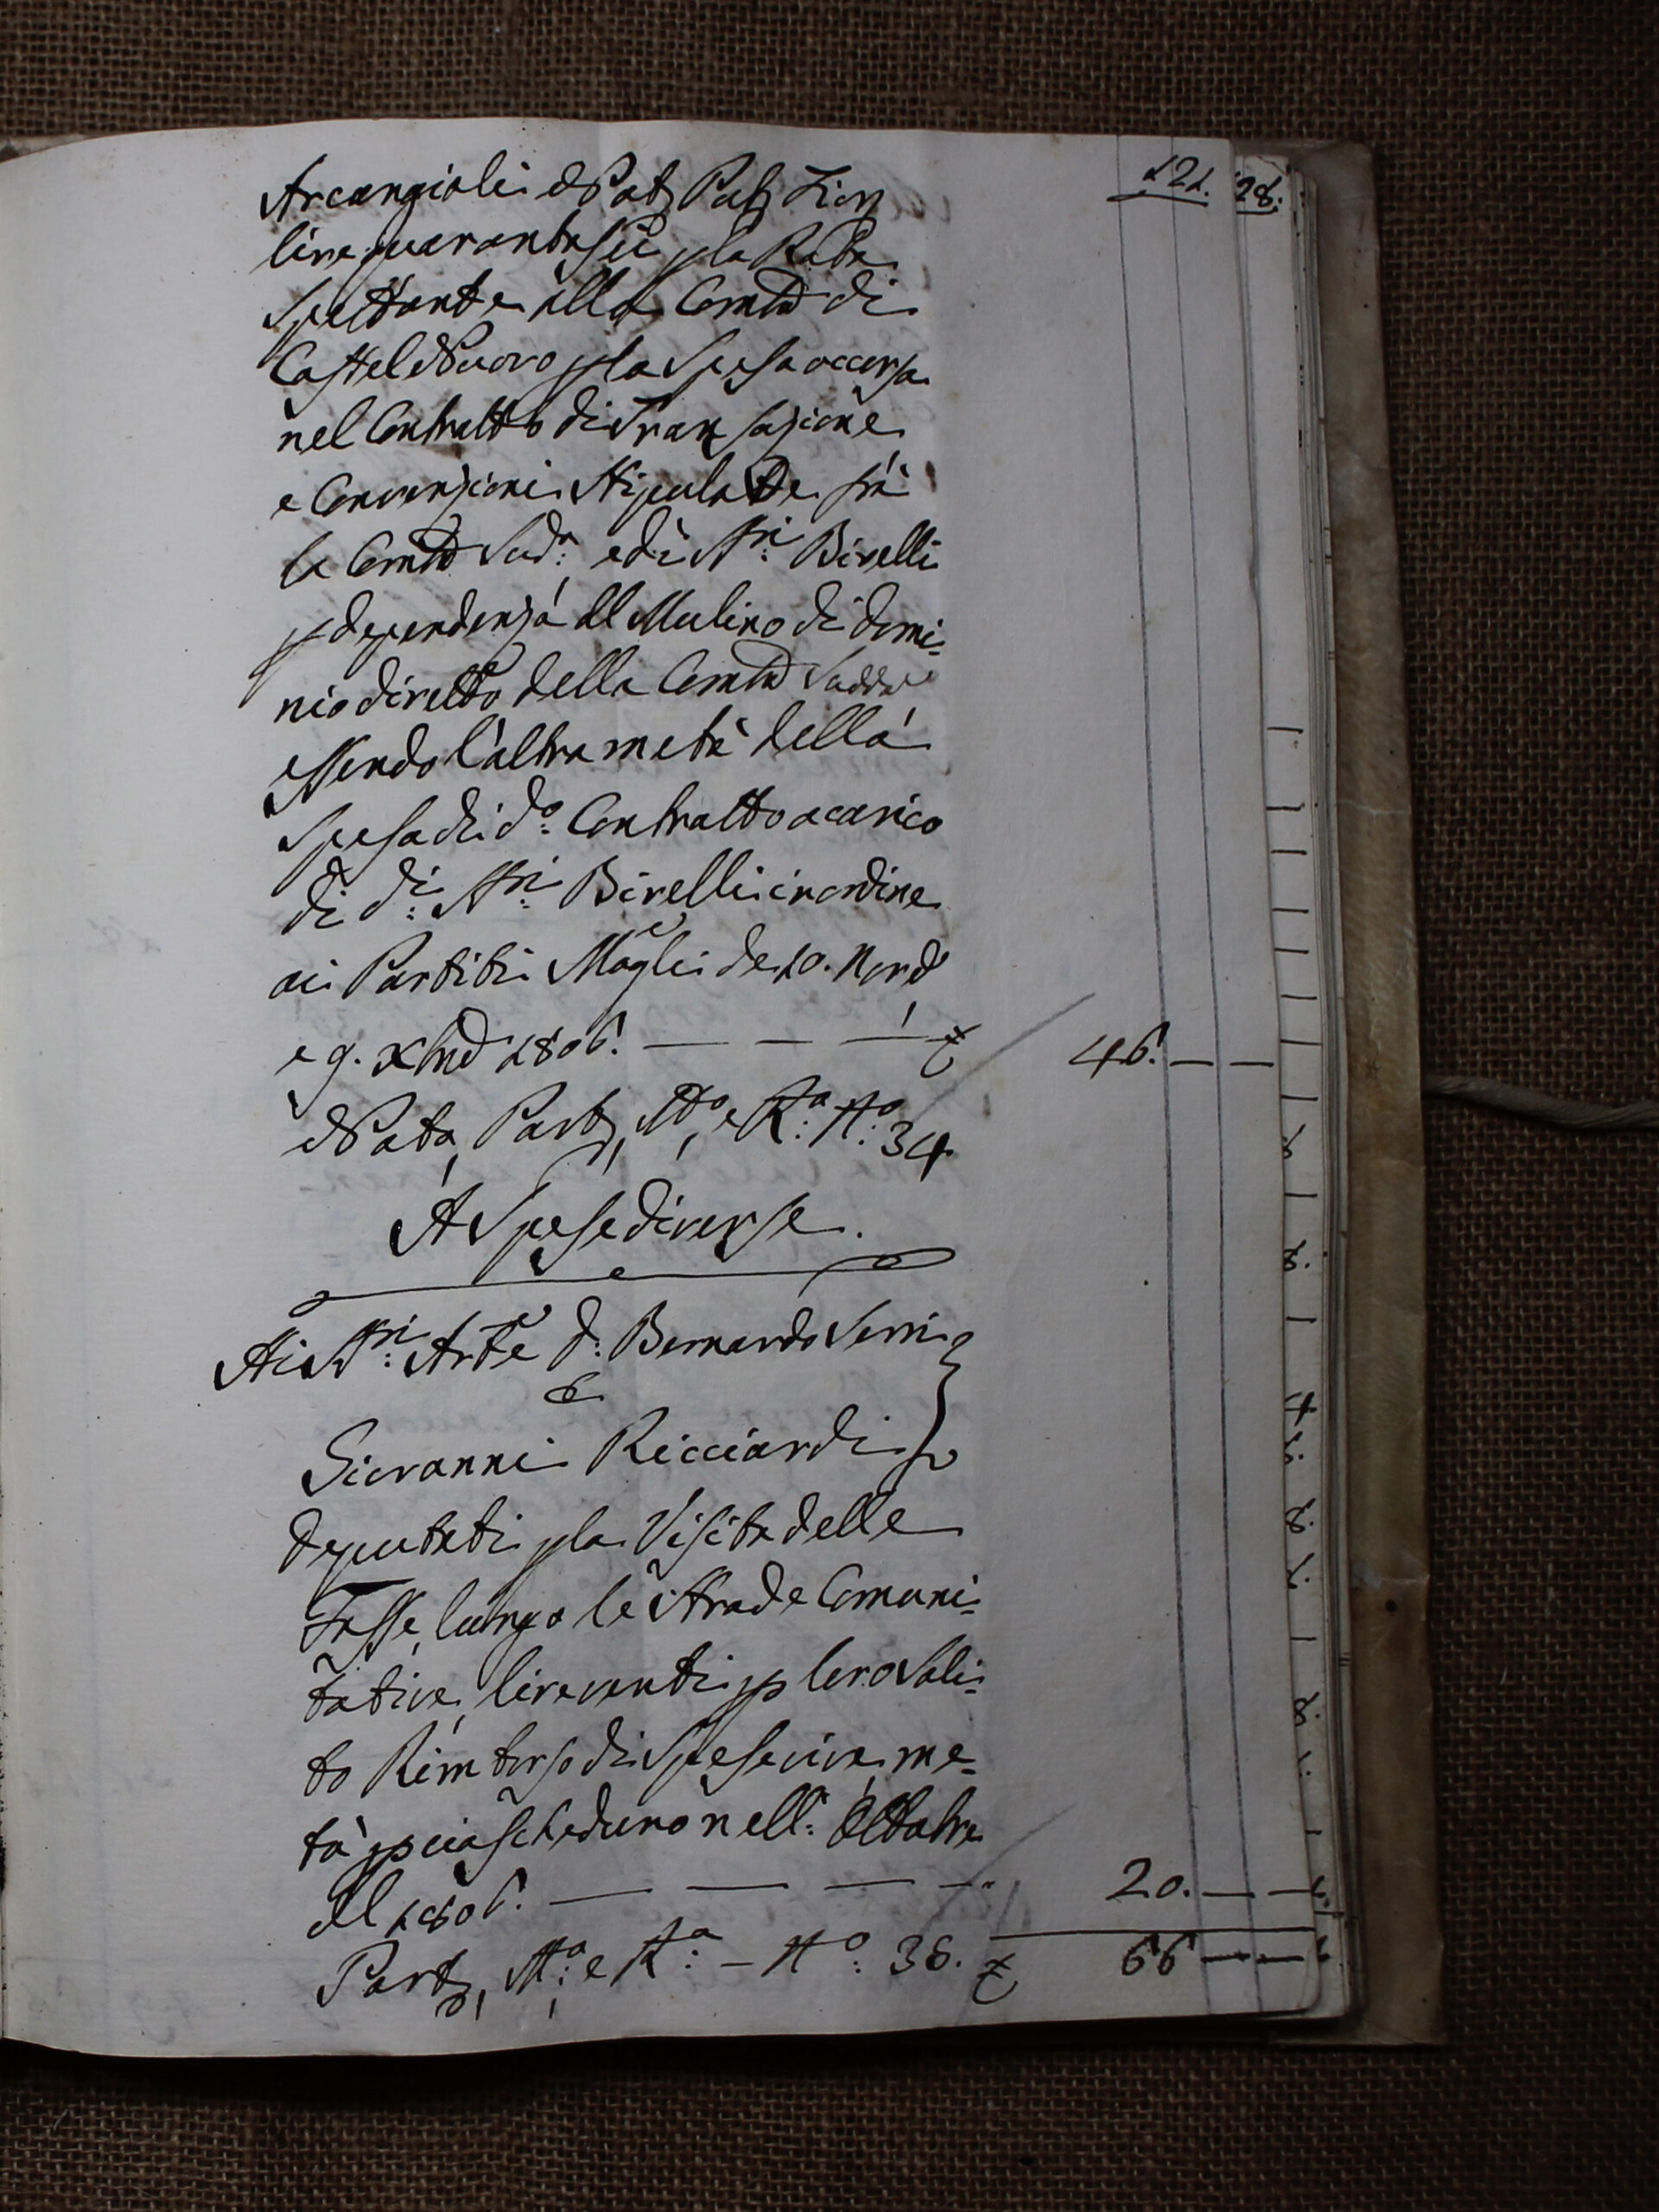 121. 28.
Arcangioli Not Pub Fior
lire quarantasei p la Rata
Spettante alla Comtà di
Castel Nuovo p la Spesa occorsa
nel Contratto di Transazione
e Convenzioni Stipulate frà
la Comtà Sud.a e di SS.ri Birelli
p dependenza del Mulino di domi=
nio diretto della Comtà Sudda
essendo l'altra metà della
Spesa di d.o Contratto a carico
di d.i SS.ri Birelli in ordine
ai Partiti Magli de 10. Nov
e 9. Xbre 1806. — — — £ 46. — —
Nota, Part, M.o e R.a N.o 34
A Spese diverse.
Ai SS.ri Arte d. Bernardo Serri
e
Giovanni Ricciardi
deputati p la Visita delle
Fosse lungo le Strade Comuni=
tative, lire venti p loro Soli=
to Rimborso di Spese vive, me=
tà p ciascheduno nell: Ottobre
del 1806. — — — — 20. — —
Part, M.o e R.a — N.o 36. £ 66 — —